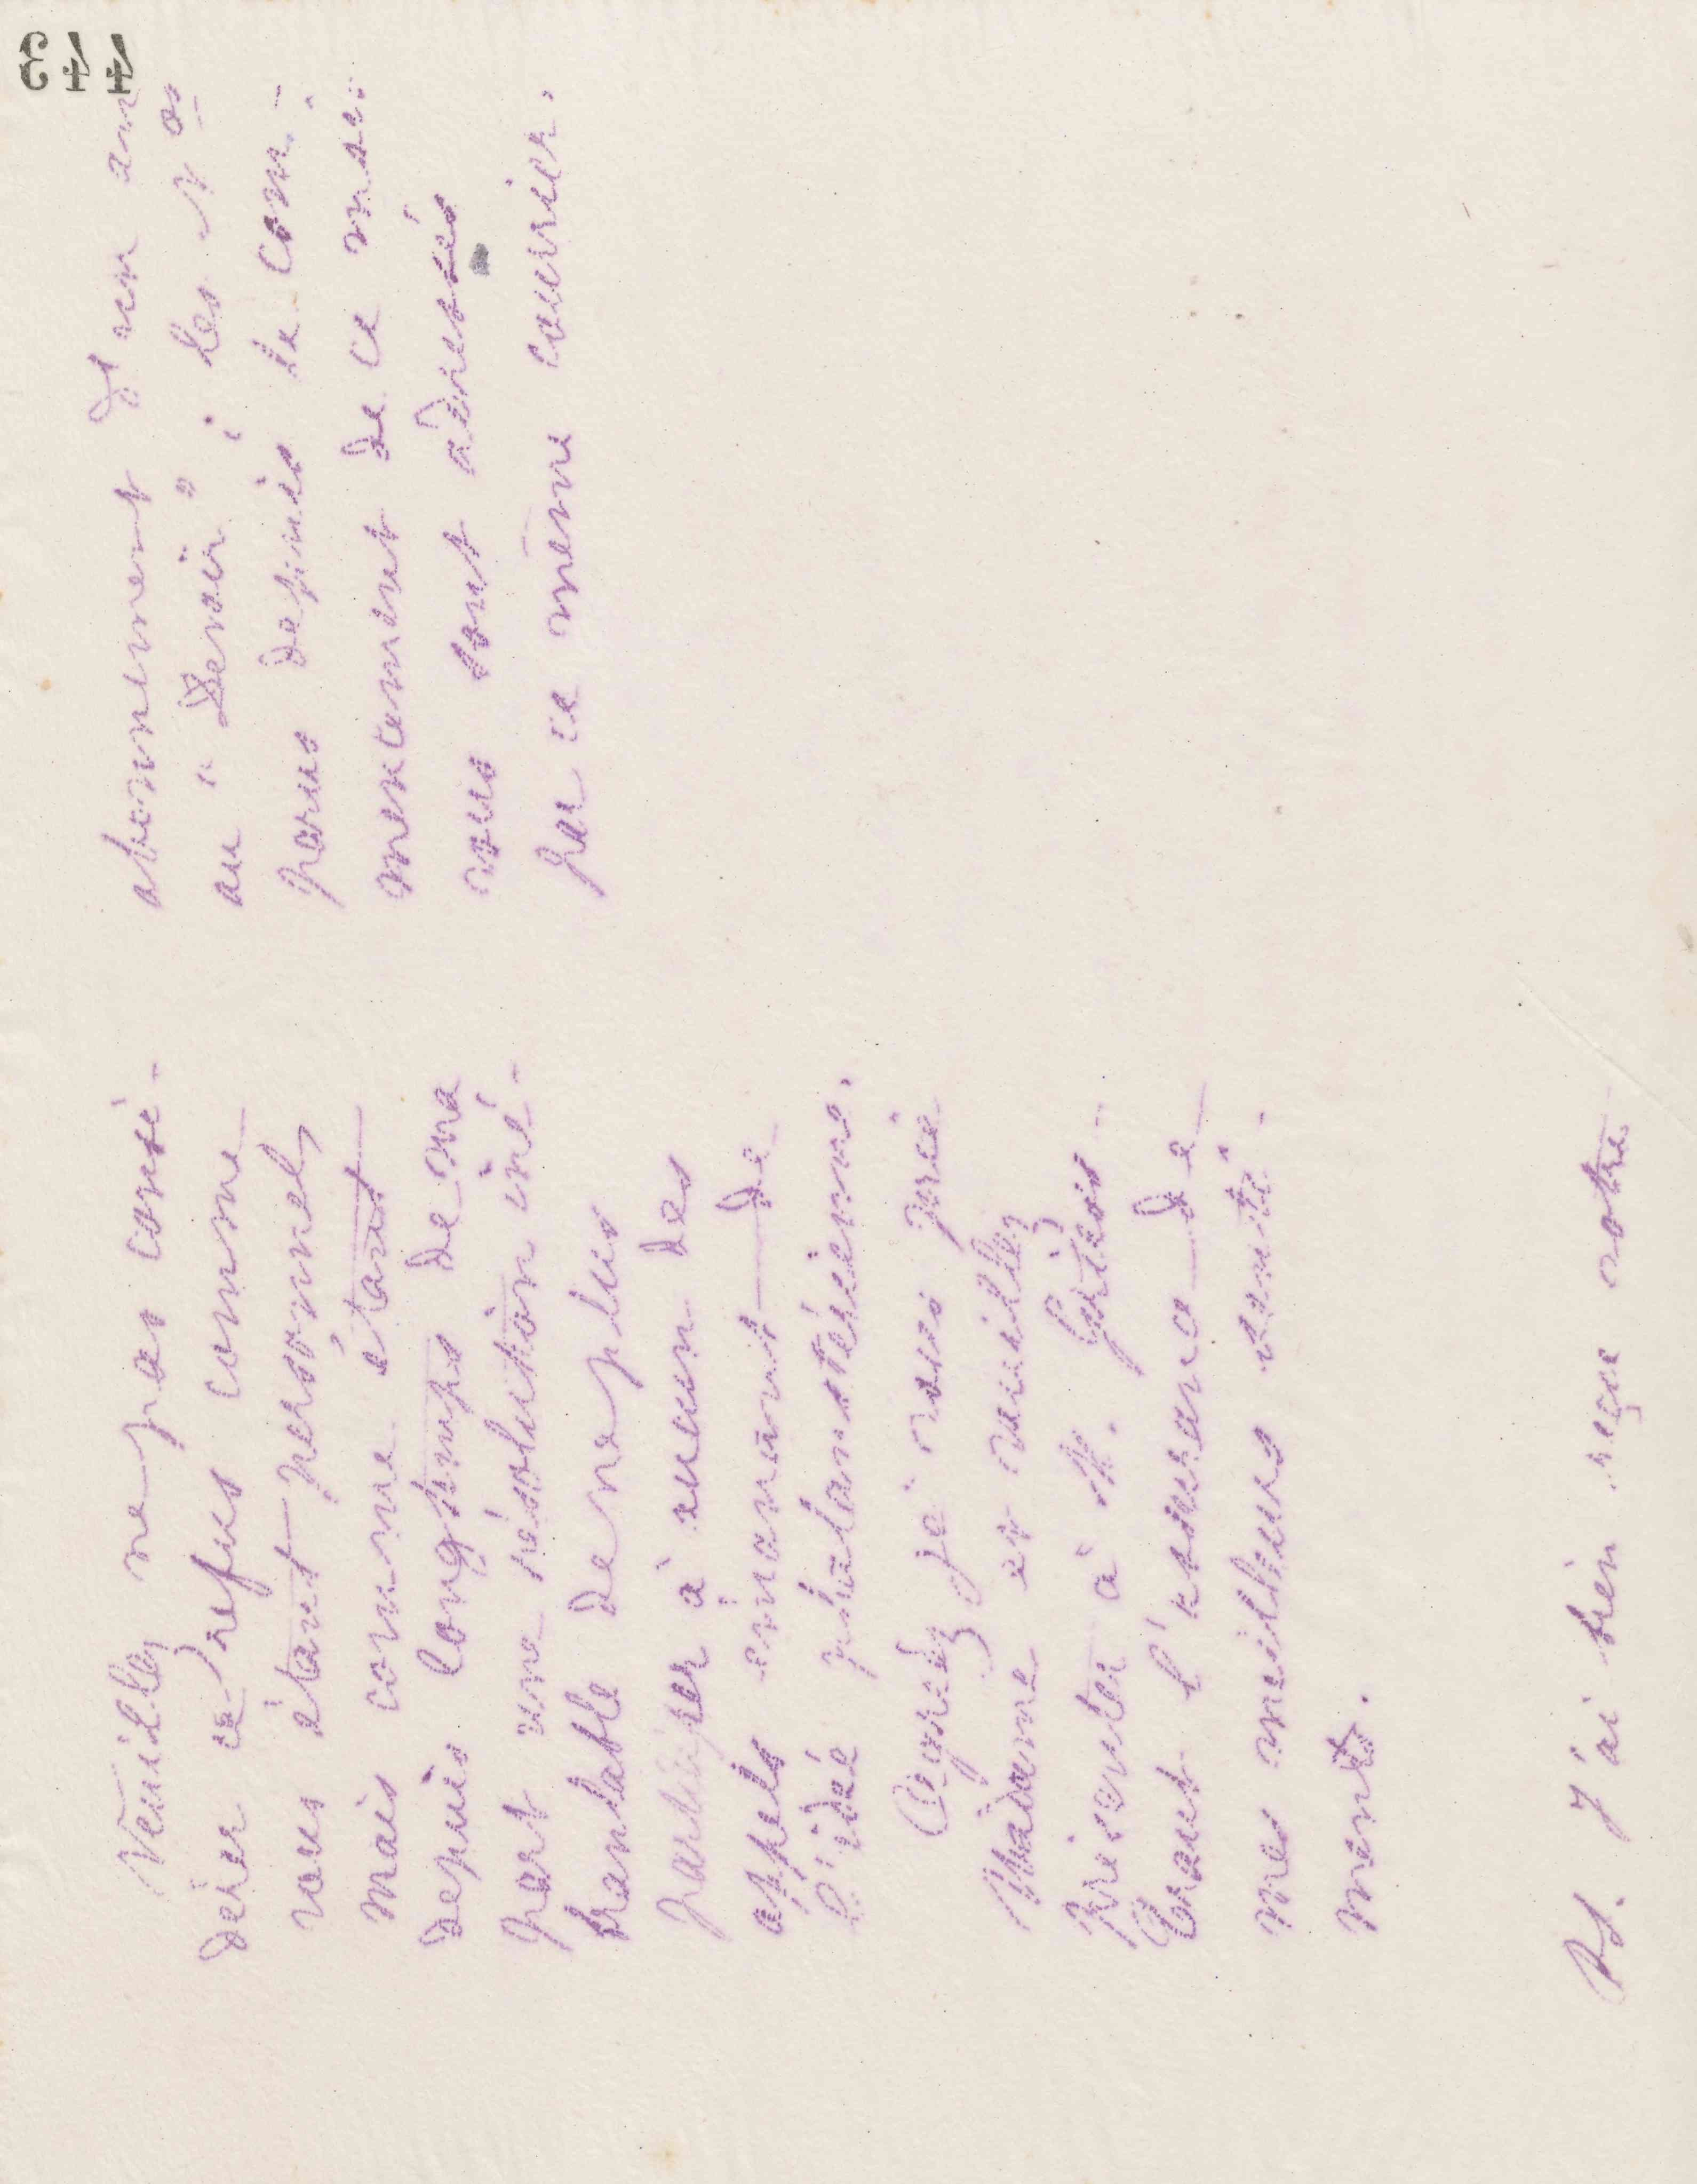 443
Veuillez ne pas consi-
dérer ce refus comme
vous étant personnel,
mais comme étant
depuis longtemps de ma
part une résolution iné-
branlable de ne plus
participer à aucun des
appels émanant de
l'idée phalanstérienne.
Agréez je vous prie
Madame et veuillez
présenter à M. Griess-
Traut l'assurance de
mes meilleurs senti-
ments.
P.S. J'ai bien reçu votre
abonnement d'un an
au "Devoir"; les Nos
parus depuis le com-
mencement de ce mois
vous sont adressés
par ce même courrier.